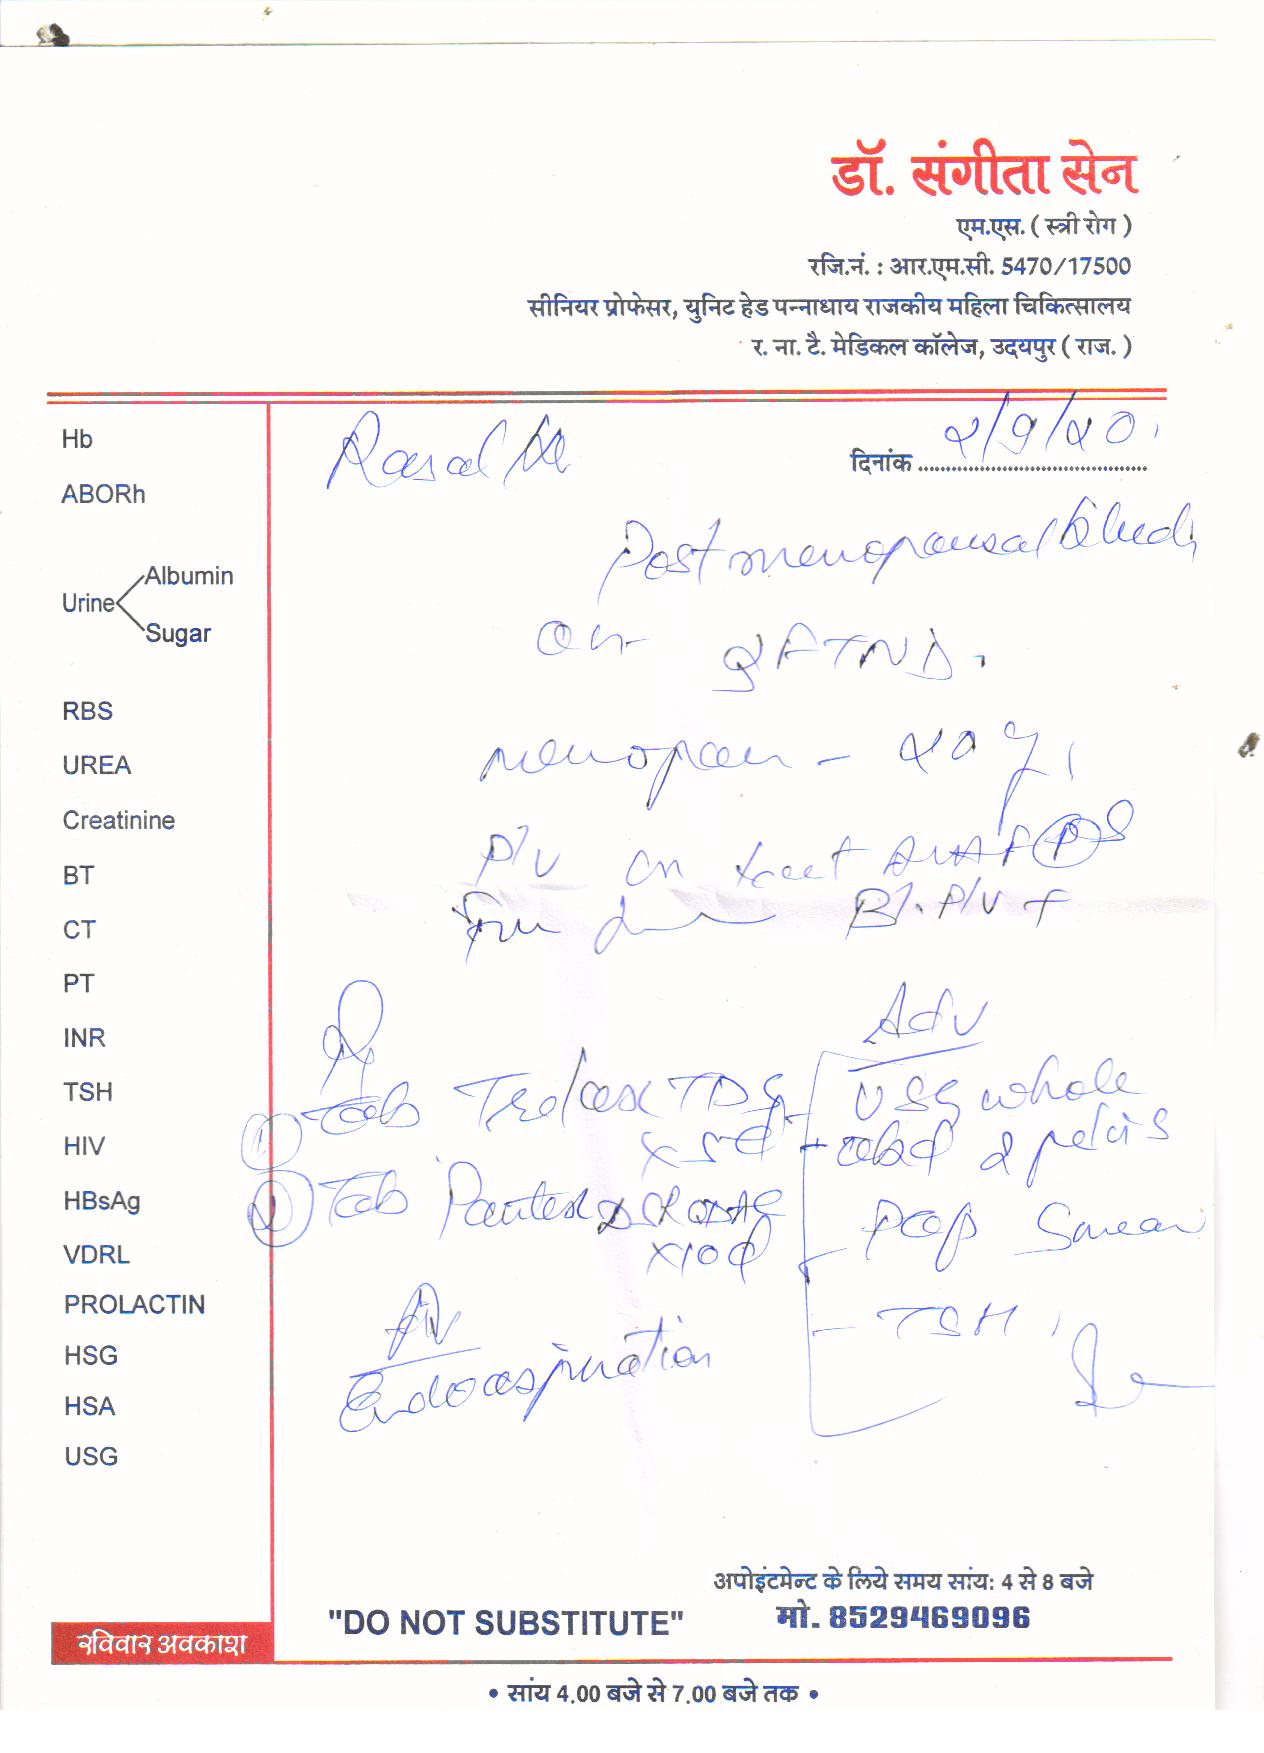 डॉ. संगीता सेन
एम.एस. ( स्त्री रोग )
रजि.नं. : आर.एम.सी. 5470/17500
सीनियर प्रोफेसर, युनिट हेड पन्नाधाय राजकीय महिला चिकित्सालय
र. ना. टै. मेडिकल कॉलेज, उदयपुर ( राज. )
दिनांक 2/9/20
Hb
ABORh
Urine Albumin
Sugar
RBS
UREA
Creatinine
BT
CT
PT
INR
TSH
HIV
HBsAg
VDRL
PROLACTIN
HSG
HSA
USG
रविवार अवकाश
Postmenopausal
2 FTND.
- 20 y
P/V
P/V
Adv
① Tab TDS
x 5d
② Tab
x 10d
USG whole
abd & pelvis
Pap Smear
- TSH
Endoaspiration
अपोइंटमेन्ट के लिये समय सांय: 4 से 8 बजे
"DO NOT SUBSTITUTE" मो. 8529469096
• सांय 4.00 बजे से 7.00 बजे तक •